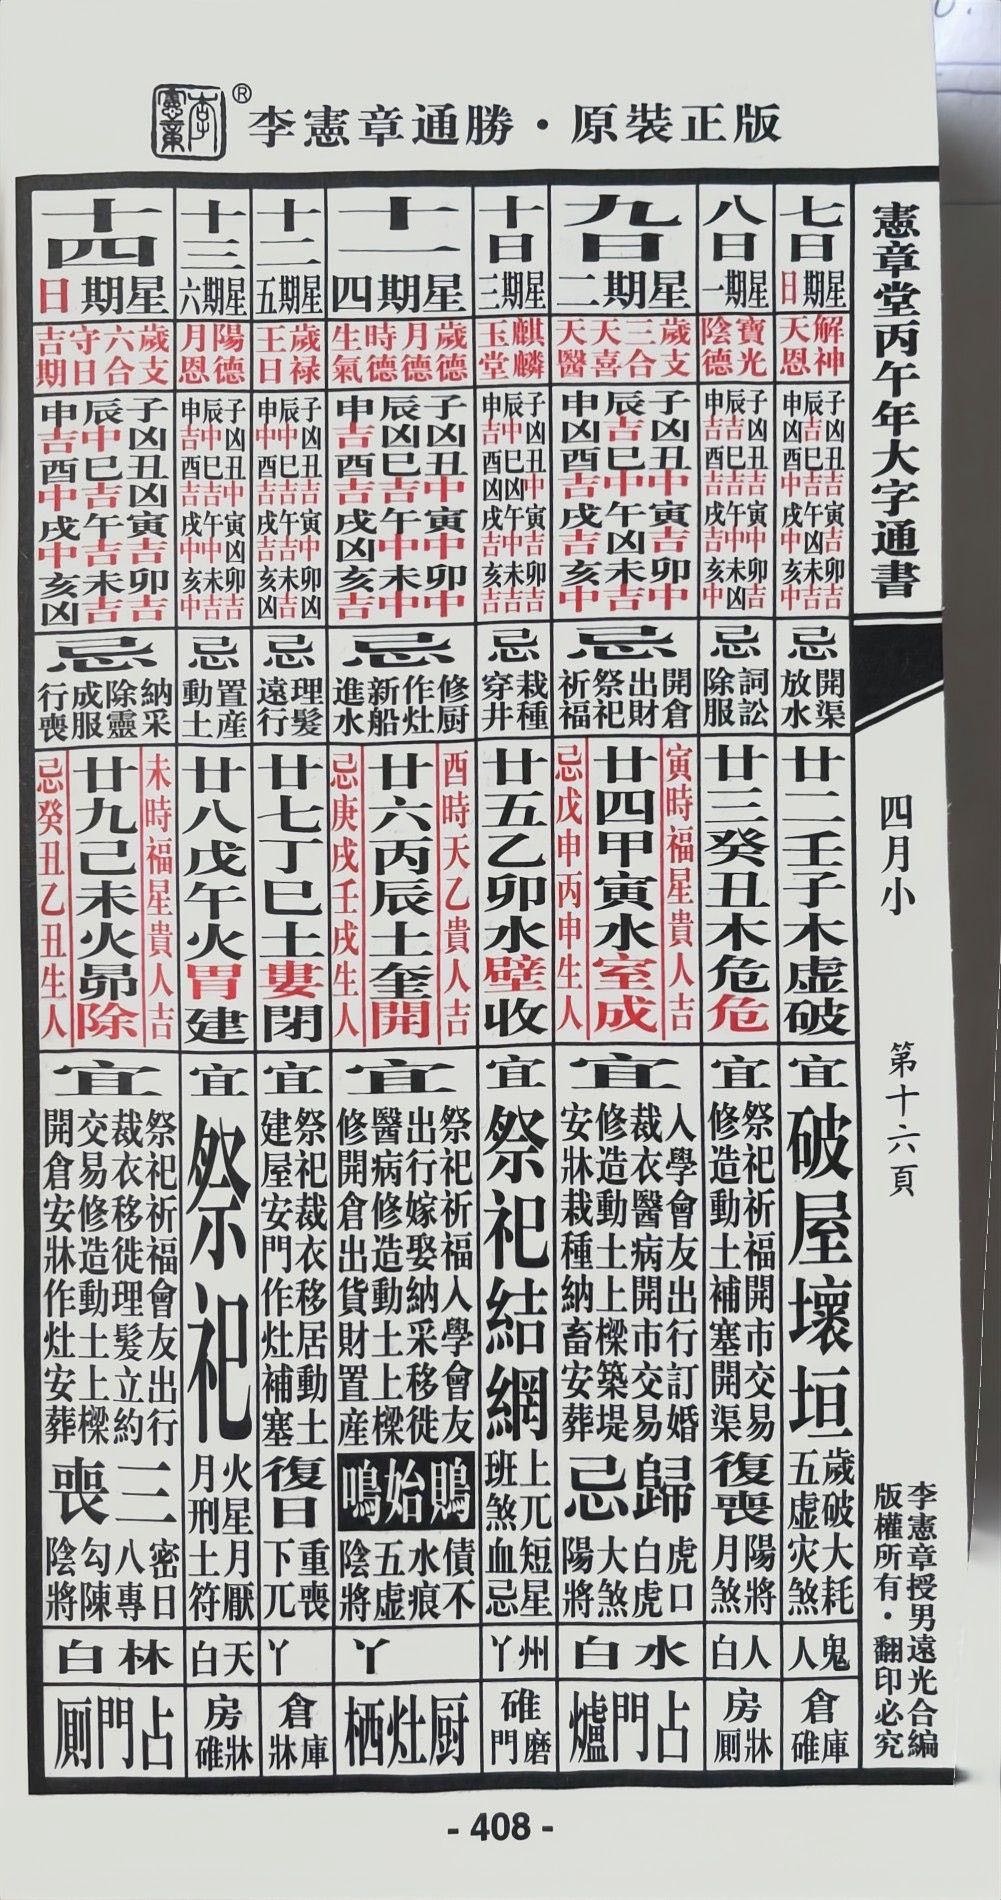 李憲章
®
李憲章通勝・原裝正版
憲章堂丙午年大字通書
四月小
第十六頁
李憲章授男遠光合編
版權所有・翻印必究
七日
星期日
解神
天恩
子凶丑吉寅吉卯吉
辰吉巳吉午凶未吉
申凶酉中戌中亥中
忌
開渠
放水
廿二壬子木虛破
宜
破屋壞垣
歲破大耗
五虛灾煞
鬼人
倉庫碓
八日
星期一
寶光
陰德
子凶丑吉寅中卯吉
辰吉巳吉午中未凶
申吉酉吉戌吉亥中
忌
詞訟
除服
廿三癸丑木危危
宜
祭祀祈福開市交易
修造動土補塞開渠
復喪
陽將
月煞
人白
房牀厠
九日
星期二
歲支
三合
天喜
天醫
子凶丑中寅吉卯中
辰吉巳中午凶未吉
申凶酉吉戌吉亥中
忌
開倉
出財
祭祀
祈福
寅時福星貴人吉
廿四甲寅水室成
忌戊申丙申生人
宜
入學會友出行訂婚
裁衣醫病開市交易
修造動土上樑築堤
安牀栽種納畜安葬
歸忌
虎口
白虎
大煞
陽將
水白
占門爐
十日
星期三
麒麟
玉堂
子凶丑中寅吉卯吉
辰中巳凶午中未吉
申吉酉凶戌吉亥吉
忌
栽種
穿井
廿五乙卯水壁收
宜
祭祀結網
上兀短星
班煞血忌
州丫
碓磨門
十一
星期四
歲德
月德
時德
生氣
子凶丑中寅中卯中
辰凶巳吉午中未中
申吉酉吉戌凶亥吉
忌
修厨
作灶
新船
進水
酉時天乙貴人吉
廿六丙辰土奎開
忌庚戌壬戌生人
宜
祭祀祈福入學會友
出行嫁娶納采移徙
醫病修造動土上樑
修開倉出貨財置産
鵙始鳴
債不
水痕
五虛
陰將
丫
厨灶栖
十二
星期五
歲禄
王日
子凶丑吉寅中卯凶
辰中巳吉午吉未吉
申中酉吉戌吉亥凶
忌
理髮
遠行
廿七丁巳土婁閉
宜
祭祀裁衣移居動土
建屋安門作灶補塞
復日
重喪
下兀
丫
倉庫牀
十三
星期六
陽德
月恩
子凶丑中寅凶卯吉
辰中巳吉午中未吉
申吉酉吉戌中亥中
忌
置産
動土
廿八戊午火胃建
宜
祭祀
火星月厭
月刑土符
天白
房牀碓
十四
星期日
歲支
六合
守日
吉期
子凶丑凶寅吉卯吉
辰中巳吉午吉未吉
申吉酉中戌中亥凶
忌
納采
除靈
成服
行喪
未時福星貴人吉
廿九己未火昴除
忌癸丑乙丑生人
宜
祭祀祈福會友出行
裁衣移徙理髮立約
交易修造動土上樑
開倉安牀作灶安葬
三喪
密日
八專
勾陳
陰將
林白
占門厠
- 408 -